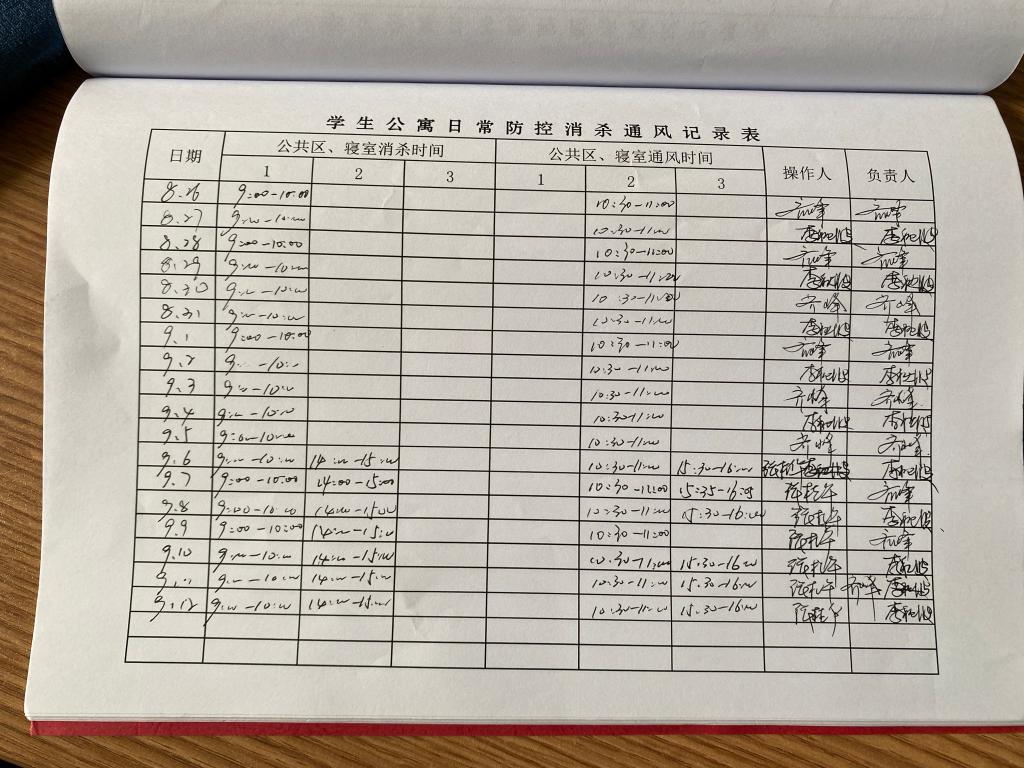 学生公寓日常防控消杀通风记录表
日期 公共区、寝室消杀时间 公共区、寝室通风时间 操作人 负责人
1 2 3 1 2 3
8.26 9:00-10:00 10:30-11:00
8.27 9:00-10:00 10:30-11:00
8.28 9:00-10:00 10:30-11:00
8.29 9:00-10:00 10:30-11:00
8.30 9:00-10:00 10:30-11:00 齐峰 齐峰
8.31 9:00-10:00 10:30-11:00
9.1 9:00-10:00 10:30-11:00
9.2 9:00-10:00 10:30-11:00
9.3 9:00-10:00 10:30-11:00 齐峰 齐峰
9.4 9:00-10:00 10:30-11:00
9.5 9:00-10:00 10:30-11:00 齐峰 齐峰
9.6 9:00-10:00 14:00-15:00 10:30-11:00 15:30-16:00
9.7 9:00-10:00 14:00-15:00 10:30-11:00 15:35-16:05
9.8 9:00-10:00 14:00-15:00 10:30-11:00 15:30-16:00
9.9 9:00-10:00 14:00-15:00 10:30-11:00
9.10 9:00-10:00 14:00-15:00 10:30-11:00 15:30-16:00
9.11 9:00-10:00 14:00-15:00 10:30-11:00 15:30-16:00
9.12 9:00-10:00 14:00-15:00 10:30-11:00 15:30-16:00